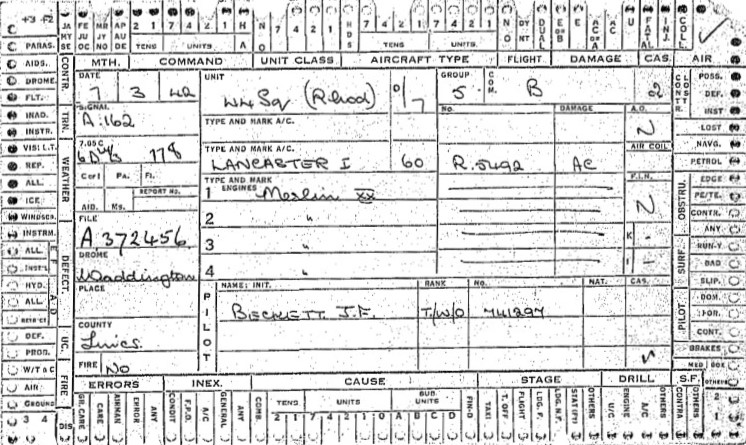 +3 +2 JA FE MR AP JY OC NO AU H N 7 4 2 1 HDS 7 4 2 1 7 4 2 1 NO DY NT DUAL E OR B E AC OR A AC U FATAL INJ. COLL.
TENS UNITS A TENS UNITS
PARAS. MTH. COMMAND UNIT CLASS AIRCRAFT TYPE FLIGHT DAMAGE CAS. AIR
AIDS.
DROME.
FLT.
INAD.
INSTR.
VISI L.T.
REP.
ALL.
ICE
WINDSCR.
INSTRM.
ALL.
INST'L
HYD.
ALL.
DEF.
PROD.
W/T & C
AIR
GROUND
3 4
CONTR.
TRN.
WEATHER
DEFECT.
UC.
FIRE
DIS.
DATE
7 3 42
UNIT
44 Sq (Rhod)
O/7
GROUP
5
COM.
B
2
SIGNAL
A.162
TYPE AND MARK A/C.
No. DAMAGE A.O.
N
7.05C
178
TYPE AND MARK A/C.
LANCASTER I 60 R.5492 AC
AIR COLL
Cert Pa. Ft.
REPORT No.
AID. Ms.
TYPE AND MARK
1 ENGINES Merlin XX
2 "
3 "
4 "
F.I.N.
N
K -
I -
FILE
A.372456
DROME
Waddington
PLACE
COUNTY
Lincs.
FIRE No
PILOT
NAME: INIT. RANK No. NAT. CAS.
BECKETT J.F. T/W/O 741297
CONSTR. CLOSS
POSS.
DEF.
INST
LOST
NAVG.
PETROL
OBSTRU.
EDGE
PE/TE.
CONTR.
ANY
SURF.
RUN-Y
BAD
SLIP.
PILOT
DOM.
FOR.
CONT.
BRAKES
MED BOX
OTHERS
2
1
ERRORS INEX. CAUSE STAGE DRILL S.F.
GR. CARE CARE AIRMAN ERROR ANY CONDIT F.P.O. A/C GENERAL ANY COMB. TENS UNITS SUB UNITS FIN-D TAXI T. OFF FLIGHT LDG. F. LDG. N.F. STAT (FT) OTHERS U/C ENGINE A/C OTHERS CONTRA
2 1 7 4 2 1 0 A B C D